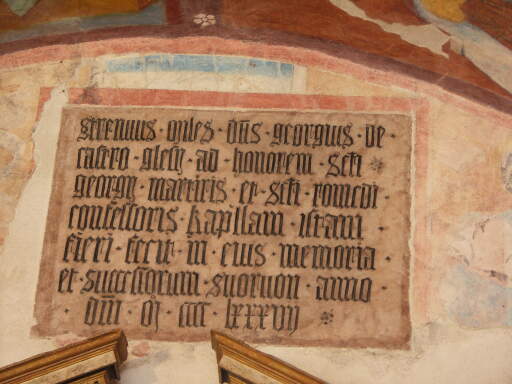 strenuus · miles · dn̄s · georgius · de ·
castro · clesy · ad · honorem · scti
georgy · martiris · et · scti · romedi ·
confessoris · kapllam · istam ·
fieri · fecit · in · eius · memoria ·
et · successorum · suorum · anno ·
· dn̄i · m̄ · cccc · lxxxvij